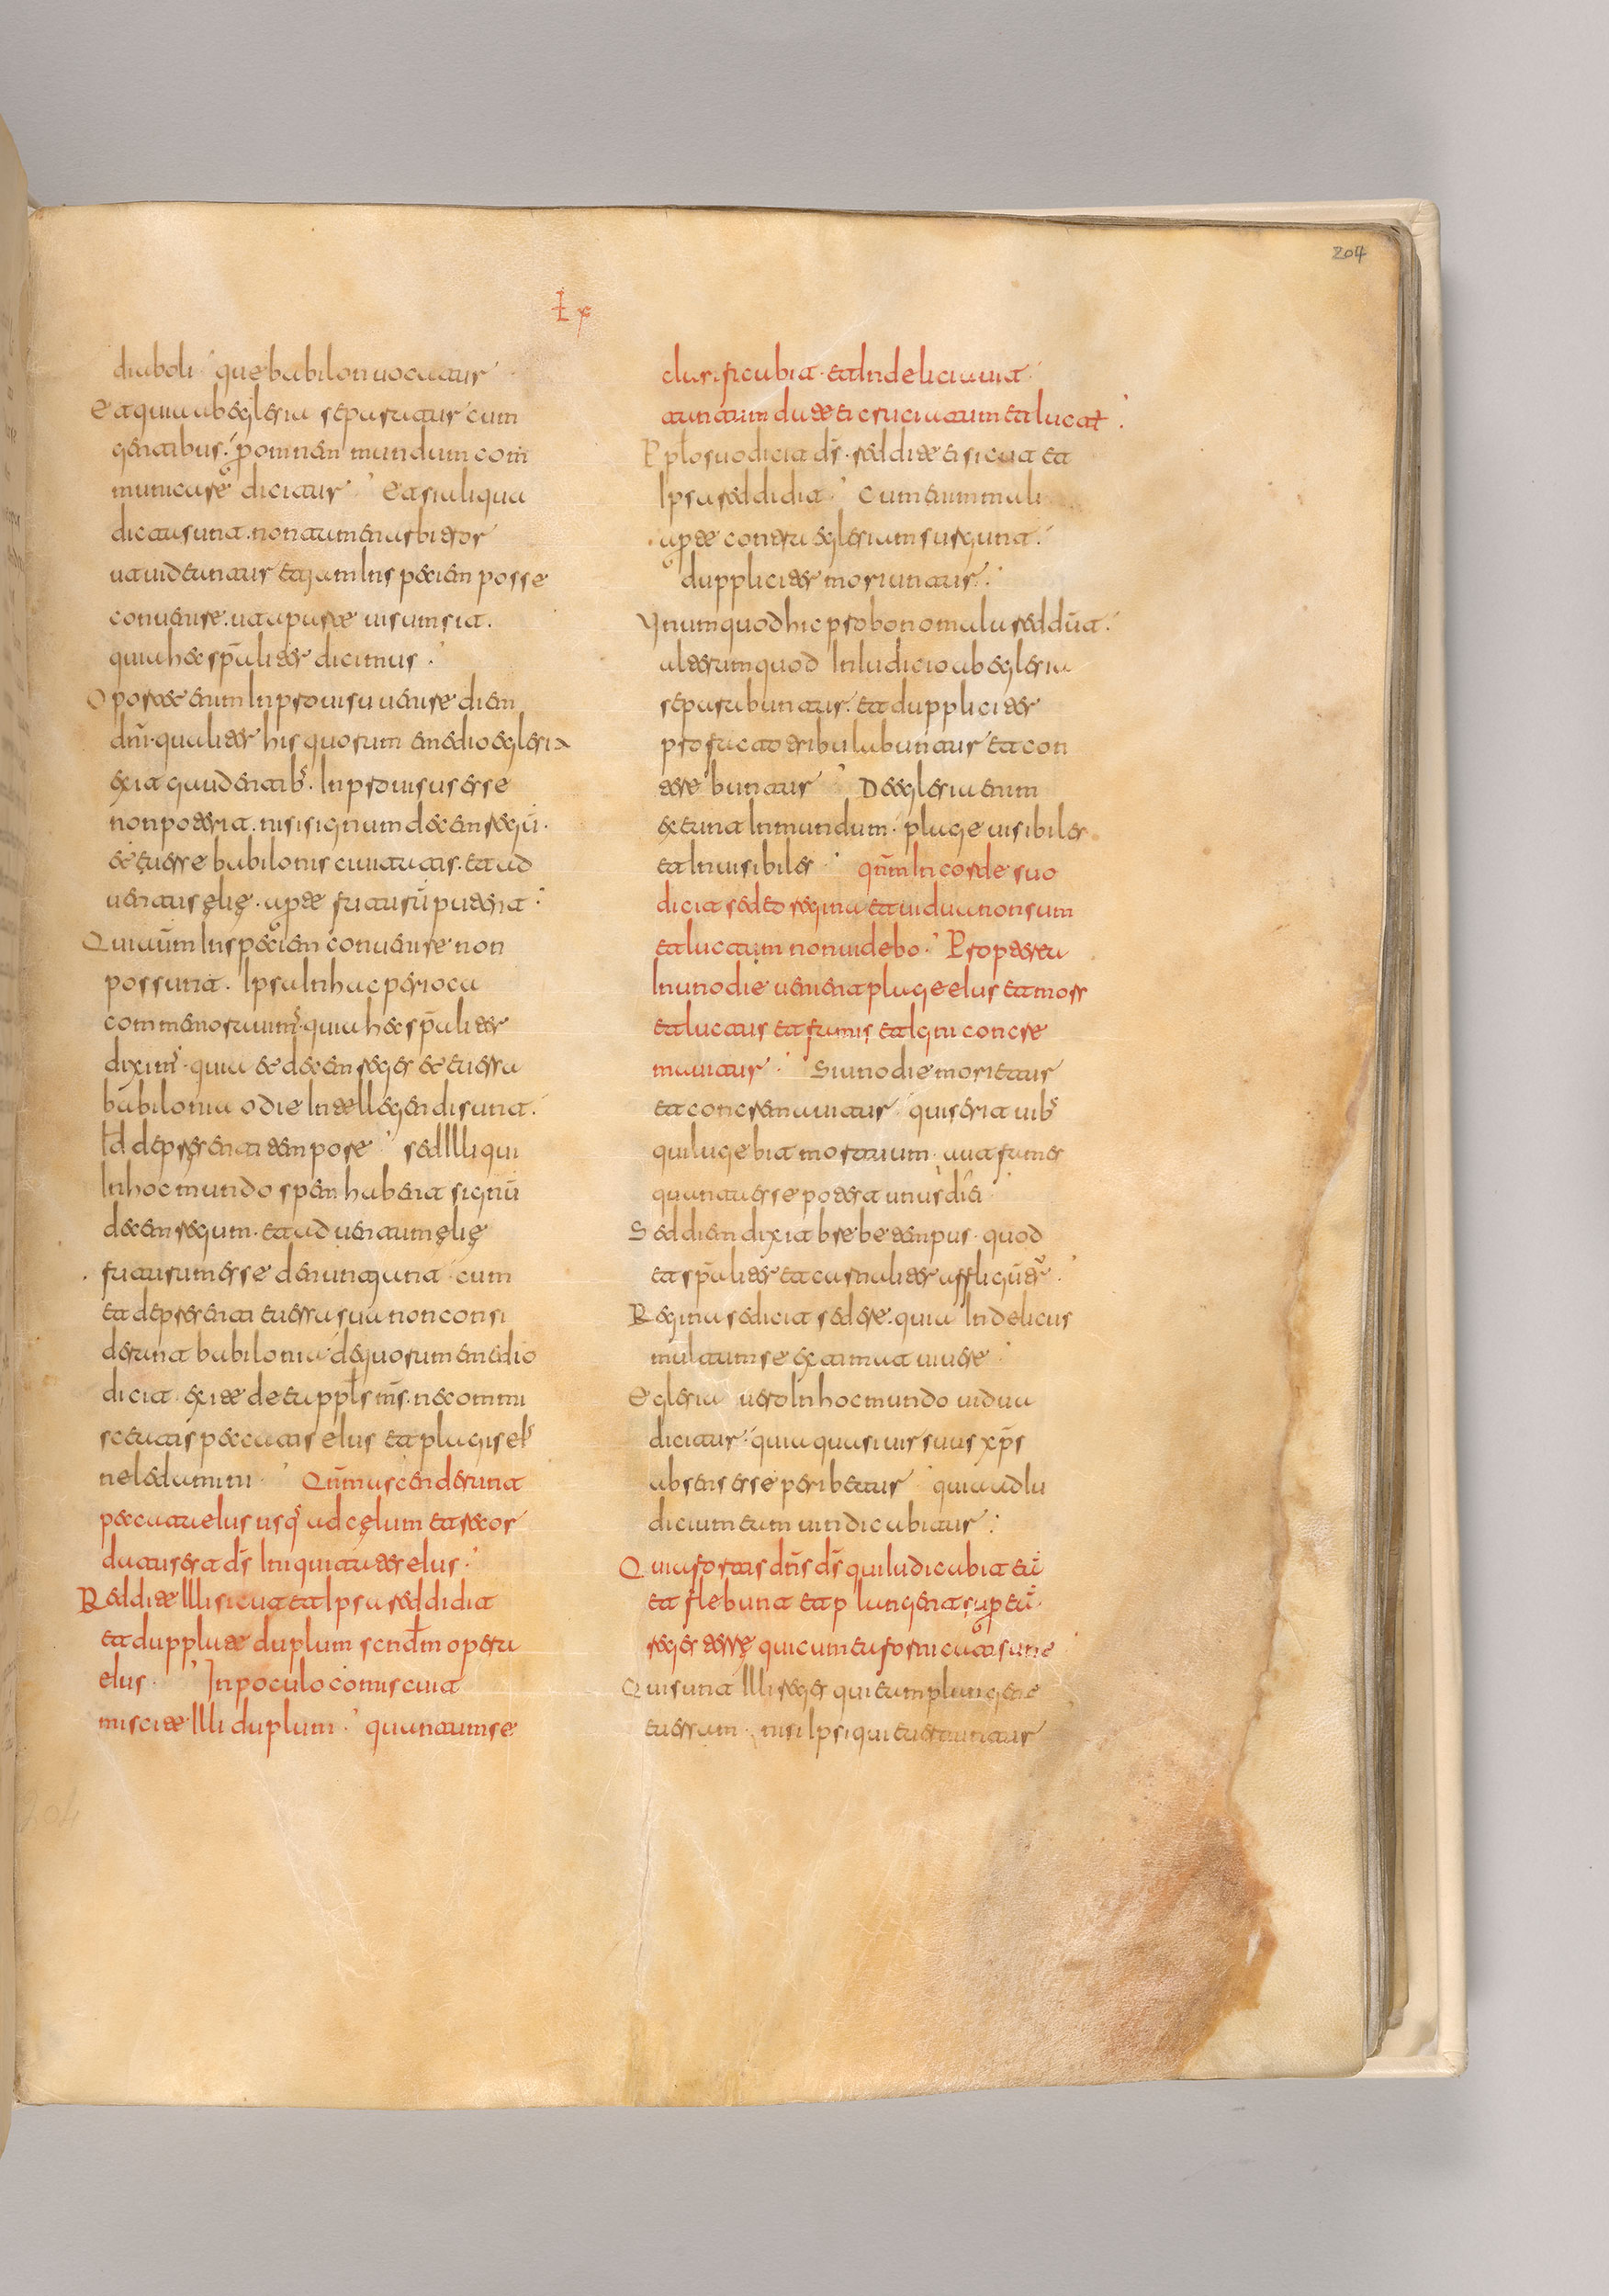 204
diaboli que babilon uocatur
Et quia ab eglesia separatur cum
gentibus. per omnem mundum com
municare dicitur. Et si aliqua
dicta sunt. non tamen arbitror
ut uideantur etiam In speciem posse
conuenire. ut aparte uisum sit.
quia hec spaliter dicimus.
Oportet enim Inprouisu uenire diem
dni. qualiter his quorum e medio eglesia
exit gaudentibs. Inprouisus esse
non poterit. nisi signum decem regū.
et euerse babilonis ciuitatis. et ad
uentus elie. aperte futurū paterit.
Qui tūm In speciem conuenire non
possunt. Ipsa In hac perioca
commemorauims. quia hec spaliter
diximˢ. quia et decem reges et euersa
babilonia odie Intellegendi sunt.
Id de presenti tempore. sed Illi qui
In hoc mundo spem habent signū
decem regum. et aduentum elie
futurum esse denuntiant. cum
et de presenti euersa sua non consi
derant babilonia. de quorum e medio
dicit. exite de ea ppls ms. ne commi
sceatis peccatis eius et plagis eiˢ
ne ledamini. Qnm ascenderunt
peccata eius usqˢ ad celum et recor
datus est ds Iniquitates eius.
Reddite Illi sicut et Ipsa reddidit
et dupplate duplum scndm opera
eius. In poculo comiscuit
miscite Illi duplum. quantum se
clarificabit. et In deliciauit
tantum date ei cruciatum et luct.
Pplo suo dicit ds. reddite ei sicut et
Ipsa reddidit. Cum enim mali
aperte contra eglesiam surgunt.
duppliciter moriuntur.
Unum quod hic pro bono mala reddūt.
alterum quod In Iudicio ab eglesia
separabuntur. et duppliciter
pro facto tribulabuntur et con
terebuntur. De eglesia enim
exeunt In mundum. plage uisibiles
et Inuisibiles. qnm In corde suo
dicit sedeo regina et uidua non sum
et luctum non uidebo. Propterea
In uno die uenient plage eius et mors
et luctus et famis et Igni concre
mauitur. Si uno die morietur
et concremauitur. quis erit uibˢ
qui lugebit mortuum. aut fames
quanta esse poterit unus diei.
Sed diem dixit brebe tempus. quod
et spaliter et carnaliter affligūtr.
Regina se dicit sedere. quia In delicus
multum se extimat uiuere.
Eglesia uero In hoc mundo uidua
dicitur. quia quasi uir suus xps
absens esse peribetur. quia ad Iu
dicium eum uindicabitur.
Quia fortis dns ds qui Iudicabit eū
et flebunt et plangent super eū.
reges terre qui cum ea fornicati sunt
Qui sunt Illi reges qui eam plangere
euersam. nisi Ipsi qui euertuntur